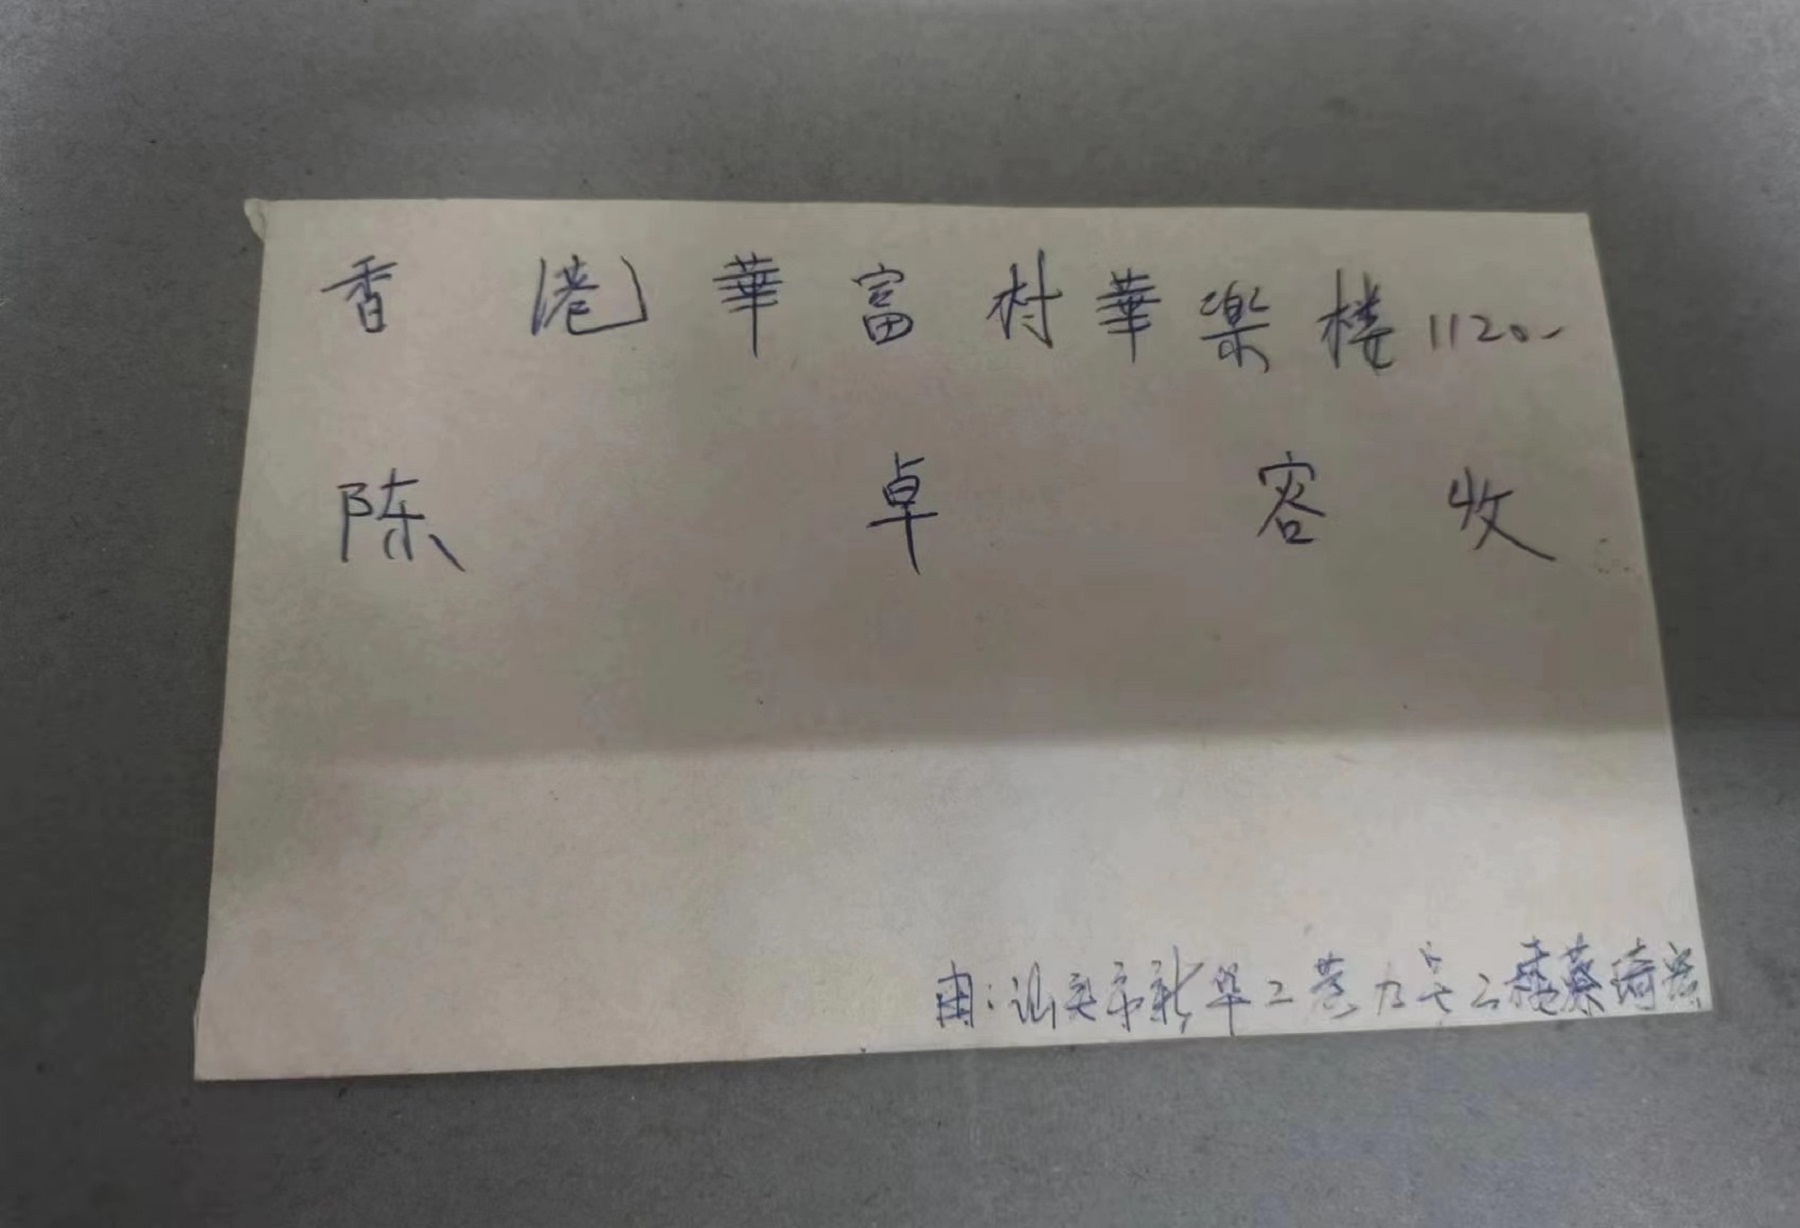 香港華富村華楽楼1120-
陈卓容收
由:汕头市新华二巷九号二楼蔡琦